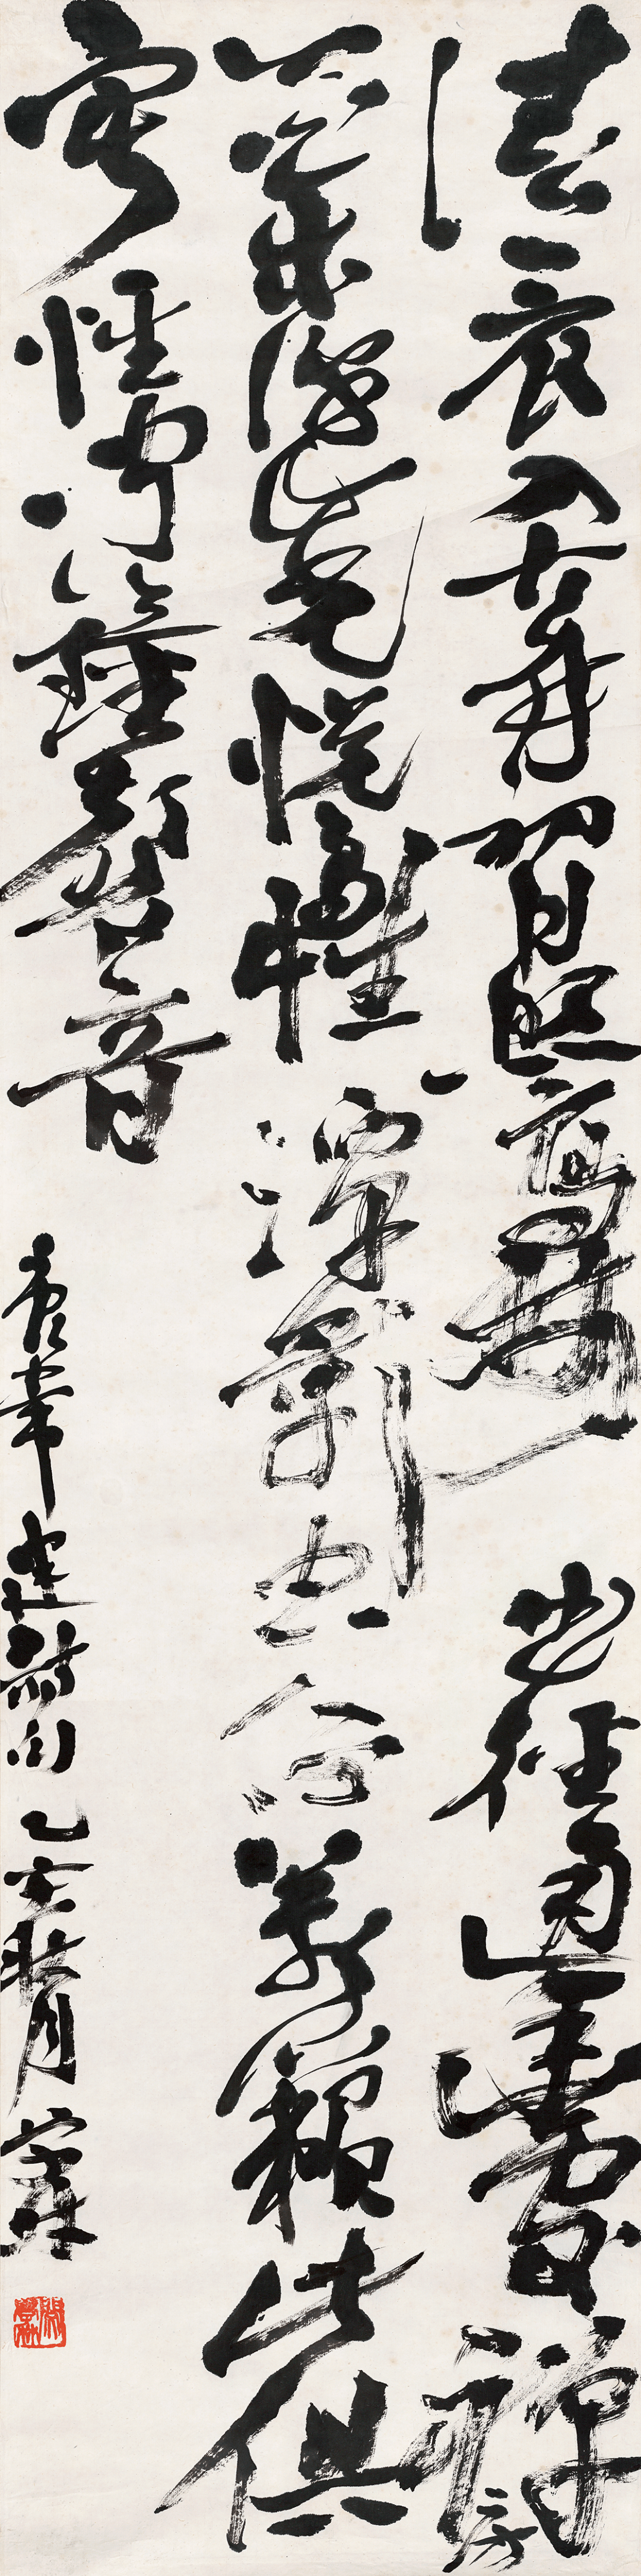 清晨入古寺初日照高林曲徑通幽處禪房
花木深山光悅鳥性潭影空人心萬籟此俱
寂惟聞鐘磬音
常建詩句乙亥月